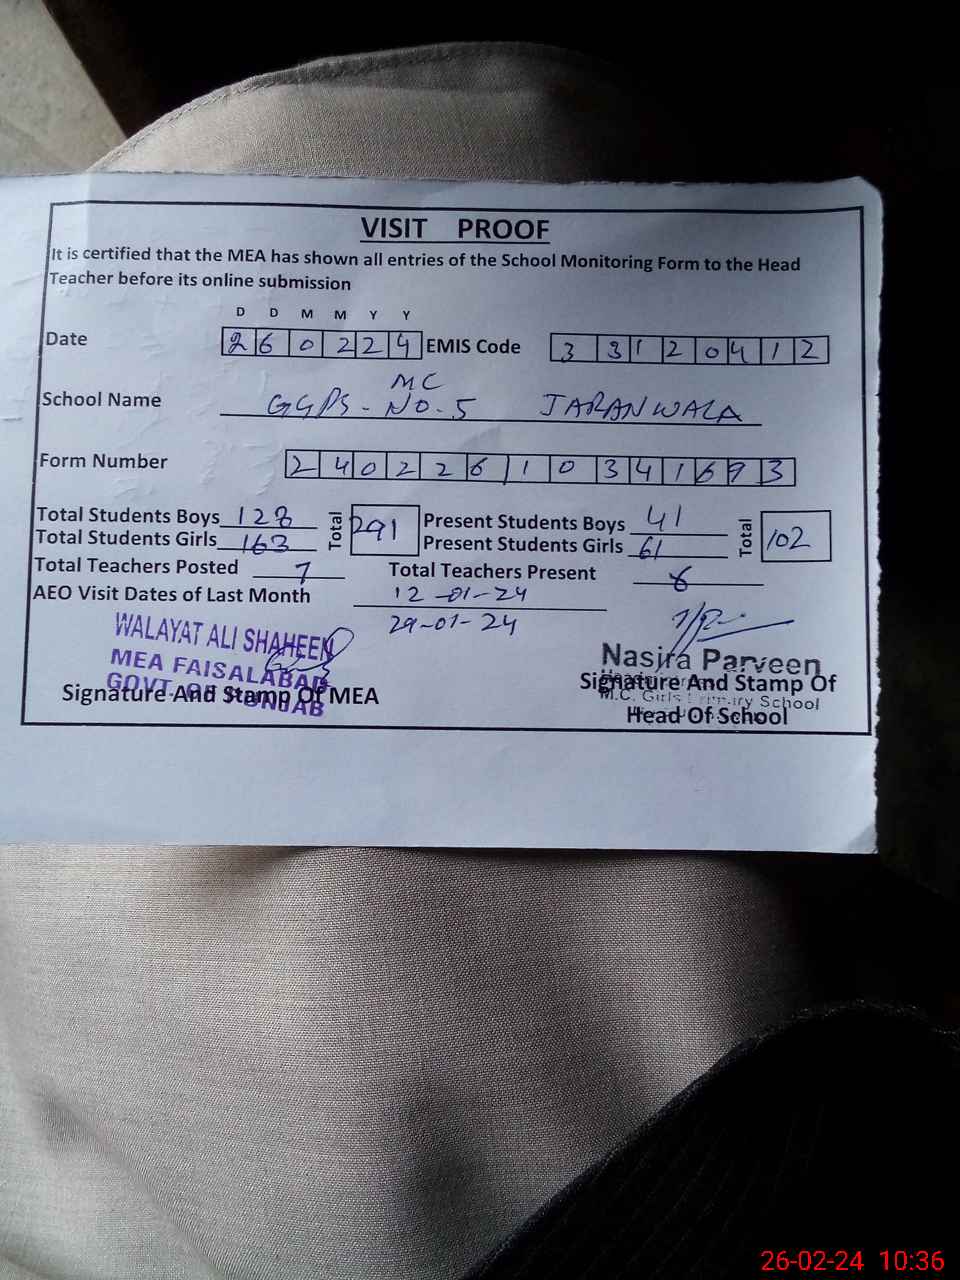 VISIT PROOF
It is certified that the MEA has shown all entries of the School Monitoring Form to the Head
Teacher before its online submission
D D M M Y Y
Date 260224 EMIS Code 33120412
MC
School Name GGPS - NO. 5 JARANWALA
Form Number 24022610341693
Total Students Boys 128 Total 291 Present Students Boys 41 Total 102
Total Students Girls 163 Present Students Girls 61
Total Teachers Posted 7 Total Teachers Present 6
AEO Visit Dates of Last Month 12-01-24
29-01-24
WALAYAT ALI SHAHEEN
MEA FAISALABAD
GOVT. OF PUNJAB
Signature And Stamp Of MEA
Nasira Parveen
M.C. Girls Primary School
Signature And Stamp Of
Head Of School
26-02-24 10:36